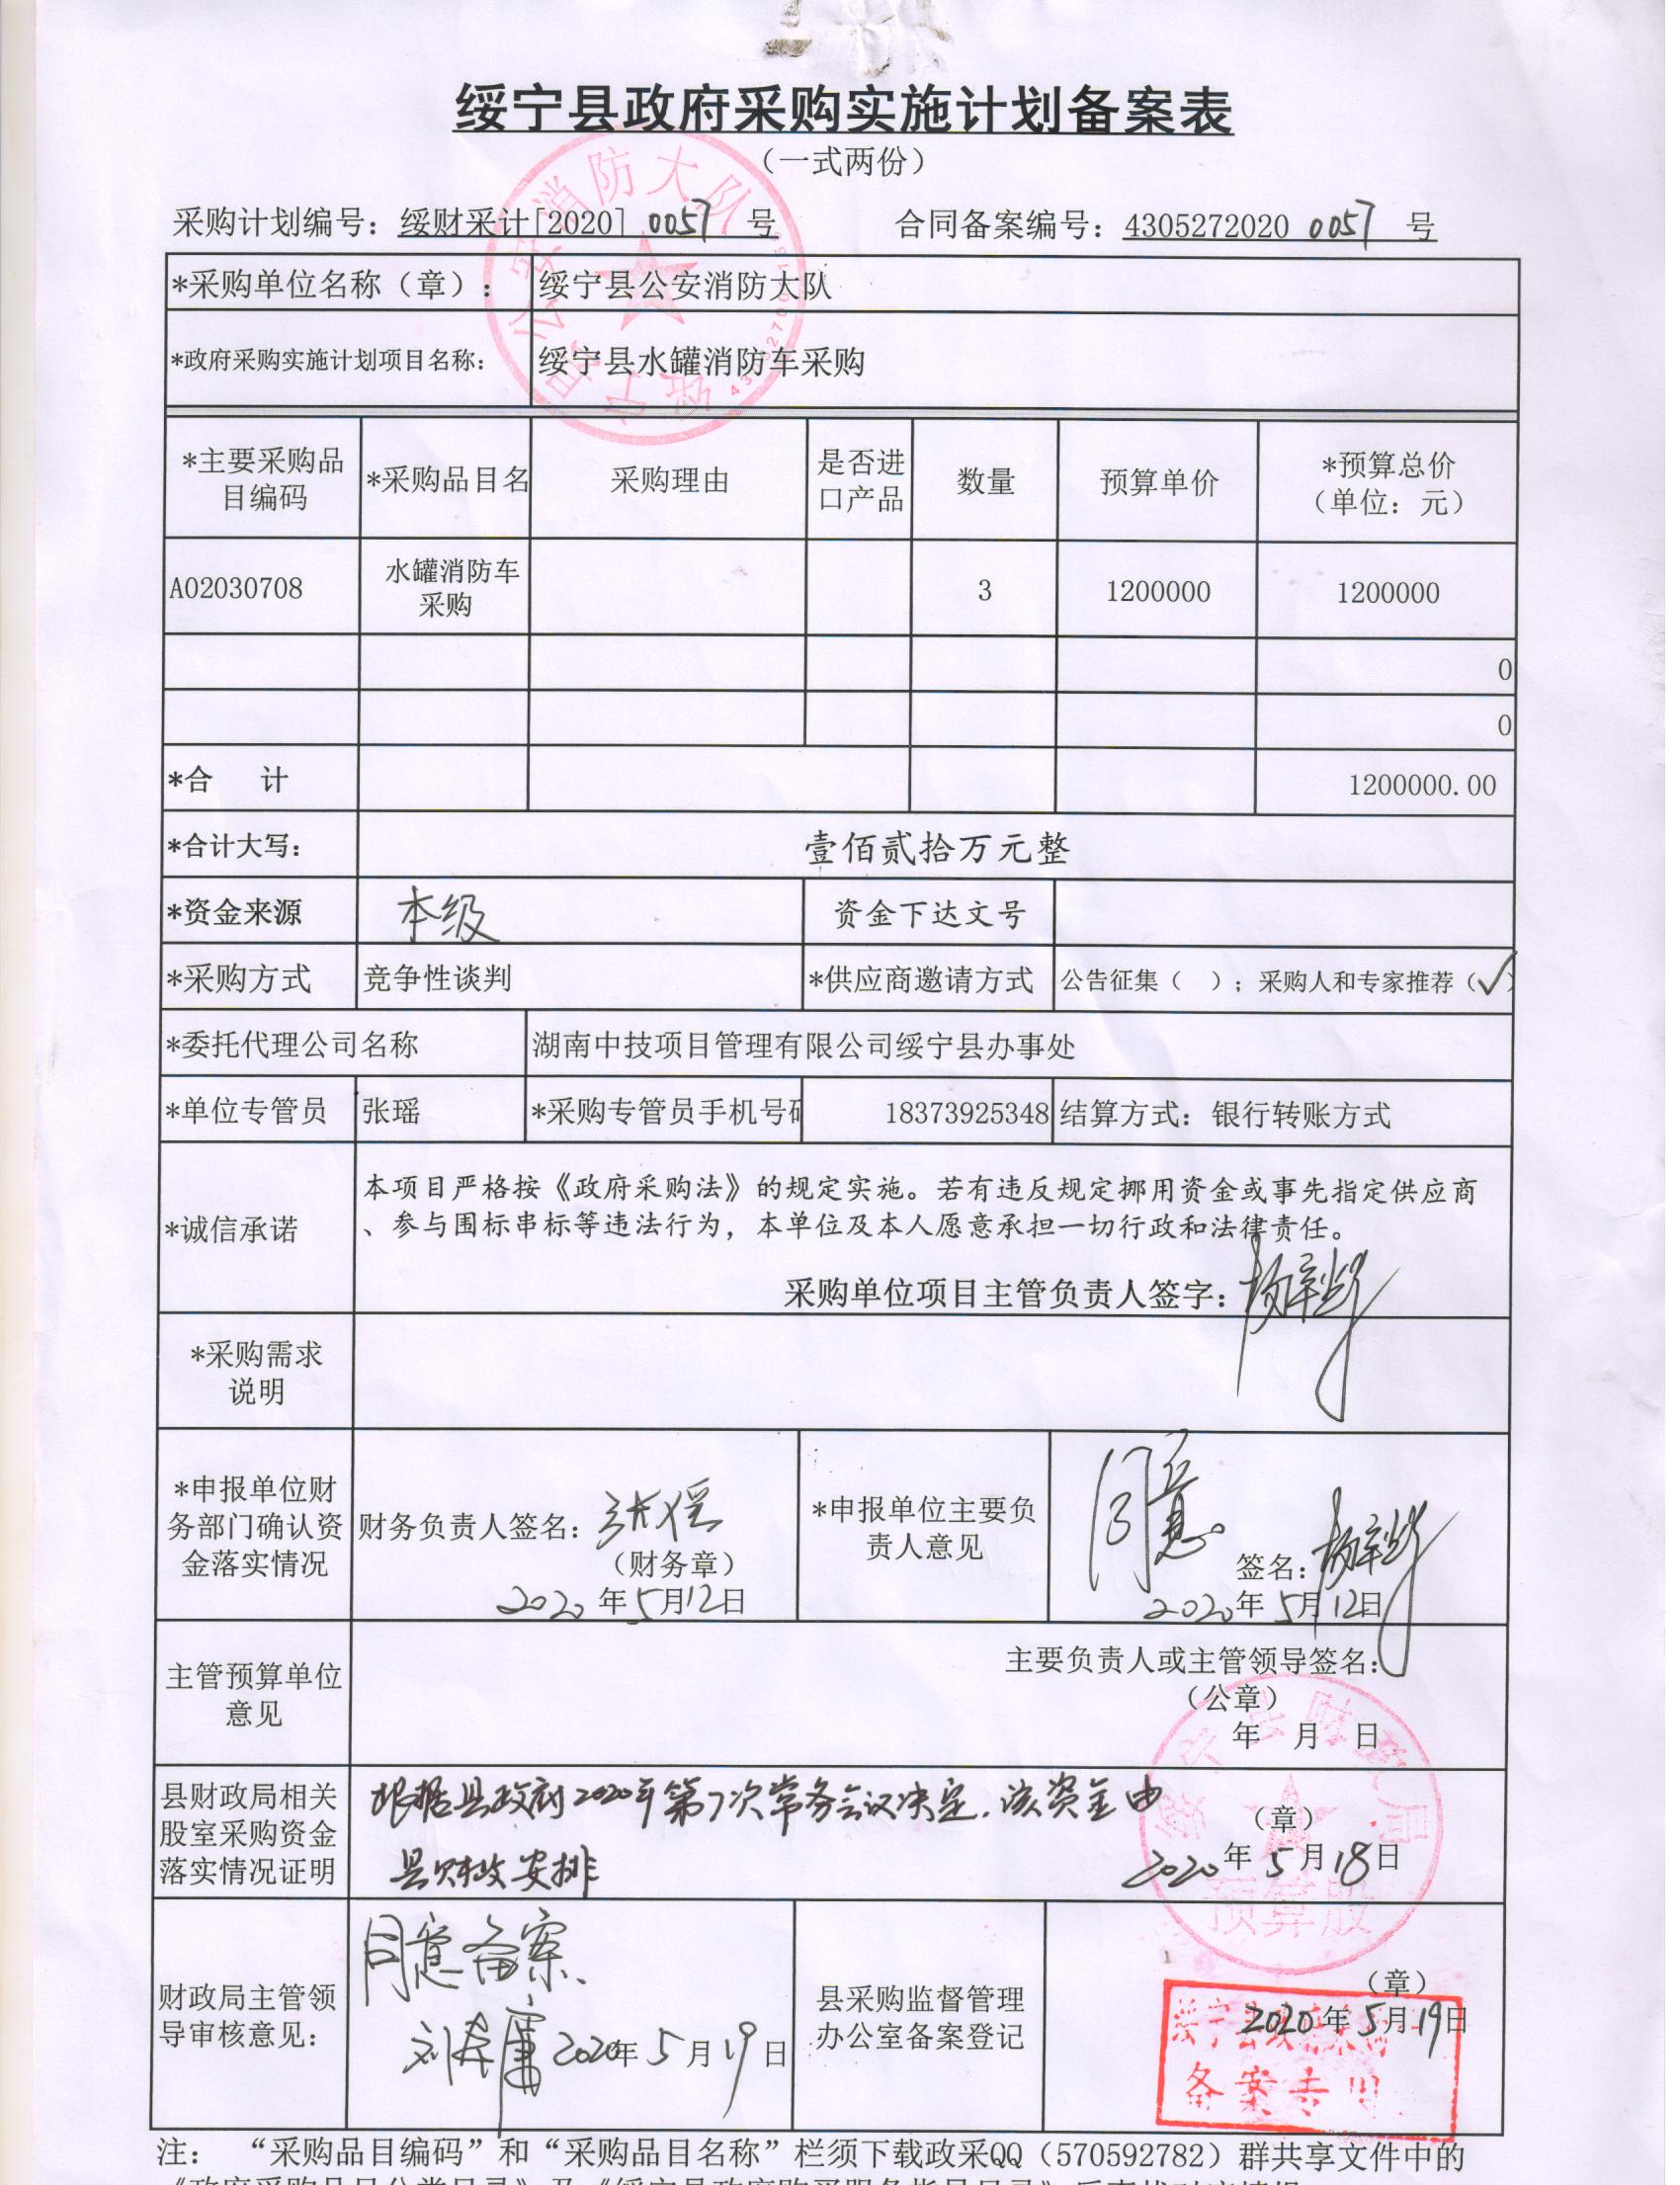 绥宁县政府采购实施计划备案表
（一式两份）
采购计划编号：绥财采计[2020] 0057 号　合同备案编号：4305272020 0057 号
*采购单位名称（章）：　绥宁县公安消防大队
*政府采购实施计划项目名称：　绥宁县水罐消防车采购
*主要采购品目编码　*采购品目名　采购理由　是否进口产品　数量　预算单价　*预算总价（单位：元）
A02030708　水罐消防车采购　3　1200000　1200000
0
0
*合　计　1200000.00
*合计大写：　壹佰贰拾万元整
*资金来源　本级　资金下达文号
*采购方式　竞争性谈判　*供应商邀请方式　公告征集（　）；采购人和专家推荐（✓）
*委托代理公司名称　湖南中技项目管理有限公司绥宁县办事处
*单位专管员　张瑶　*采购专管员手机号码　18373925348　结算方式：银行转账方式
*诚信承诺
本项目严格按《政府采购法》的规定实施。若有违反规定挪用资金或事先指定供应商
、参与围标串标等违法行为，本单位及本人愿意承担一切行政和法律责任。
采购单位项目主管负责人签字：
*采购需求
说明
*申报单位财
务部门确认资
金落实情况
财务负责人签名：张瑶
（财务章）
2020年5月12日
*申报单位主要负
责人意见
同意
签名：
2020年5月12日
主管预算单位
意见
主要负责人或主管领导签名：
（公章）
年　月　日
县财政局相关
股室采购资金
落实情况证明
根据县政府2020年第7次常务会议决定，该资金由
县财政安排
（章）
2020年5月18日
财政局主管领
导审核意见：
同意备案、
2020年5月19日
县采购监督管理
办公室备案登记
（章）
2020年5月19日
备案专用
绥宁县公安消防大队
绥宁县财政局
预算股
注：　“采购品目编码”和“采购品目名称”栏须下载政采QQ（570592782）群共享文件中的